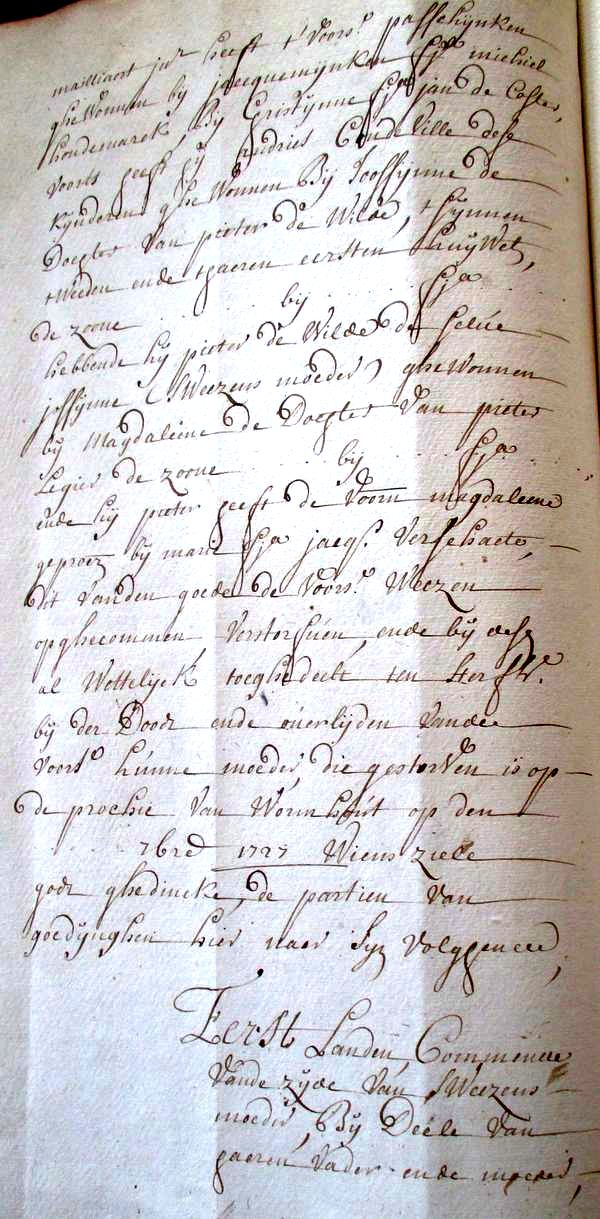 mailliaert jnr heeft t'voors. passchynken
ghewonnen bij jacquemynken fa michiel
houdemarck, Bij Cristynne fa jan de Coster,
voorts heeft sij andries Coudeville dese
kynderen ghewonnen Bij Joossynne de
Dogter van pieter de Wilde, t synnen
tweeden ende haeren eersten huyWet,
de zoone bij fa
hebbende hij pieter de Wilde de selve
jossynne (sWeezens moeder) ghewonnen
bij Magdaleene de Dogter van pieter
Legier de zoone bij fa
ende hij pieter heeft de voorn magdaleene
geproez bij marie fa jacqs. Verschaete,
dit vanden goede de voors. Weezen
opghecommen, verstorfven, ende bij dese
al Wettelijck toeghedeelt ten sterfh.
bij der Doodt ende overlijden vande
voors. hunne moeder, die gestorven is op
de prochie van Wormhout op den
7bre 1727 Wiens ziele
godt ghedincke, de partien van
goedijnghen hier naer syn volghende,
Eerst Landen, Commende
vande zijde van sWeezens
moeder, Bij Deele van
haeren vader ende moeder,